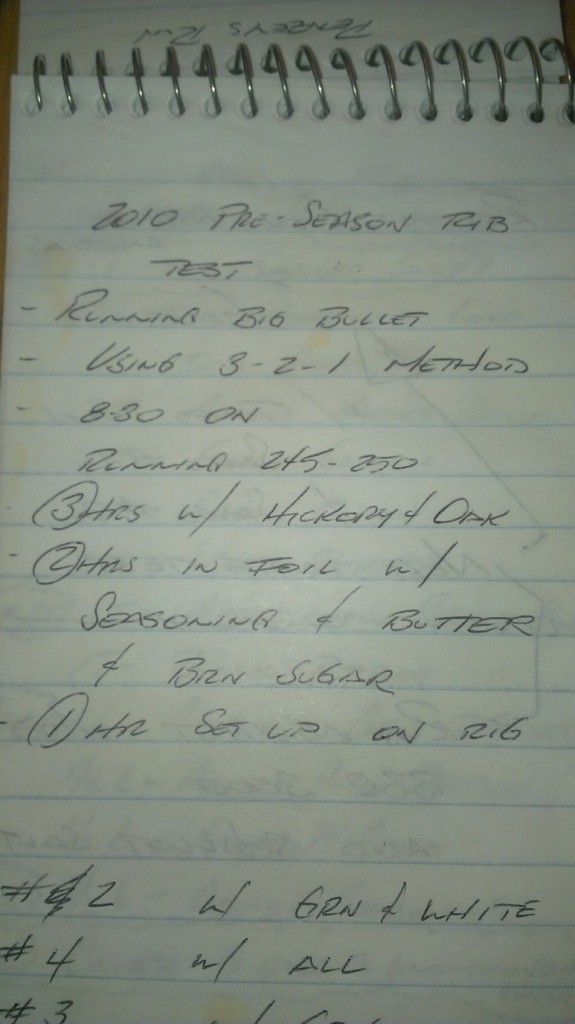 PENZEYS RUN
2010 PRE-SEASON RIB
TEST
- RUNNING BIG BULLET
- USING 3-2-1 METHOD
- 8:30 ON
RUNNING 245-250
- 3 HRS w/ HICKORY & OAK
- 2 HRS IN FOIL w/
SEASONING & BUTTER
& BRN SUGAR
- 1 HR SET UP ON RIG
#2 w/ GRN & WHITE
#4 w/ ALL
#3 w/